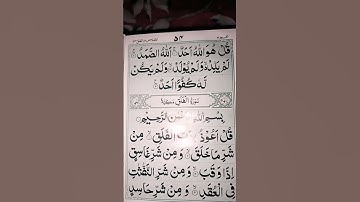 قُلْ هُوَ اللّٰهُ اَحَدٌ ۚ اَللّٰهُ الصَّمَدُ ۚ
لَمْ يَلِدْ ۙ وَلَمْ يُوْلَدْ ۙ وَلَمْ يَكُنْ
لَّهٗ كُفُوًا اَحَدٌ
سُوْرَةُ الْفَلَقِ مَكِّيَّةٌ
بِسْمِ اللّٰهِ الرَّحْمٰنِ الرَّحِيْمِ
قُلْ اَعُوْذُ بِرَبِّ الْفَلَقِ ۙ مِنْ
شَرِّ مَا خَلَقَ ۙ وَمِنْ شَرِّ غَاسِقٍ
اِذَا وَقَبَ ۙ وَمِنْ شَرِّ النَّفّٰثٰتِ
فِى الْعُقَدِ ۙ وَمِنْ شَرِّ حَاسِدٍ